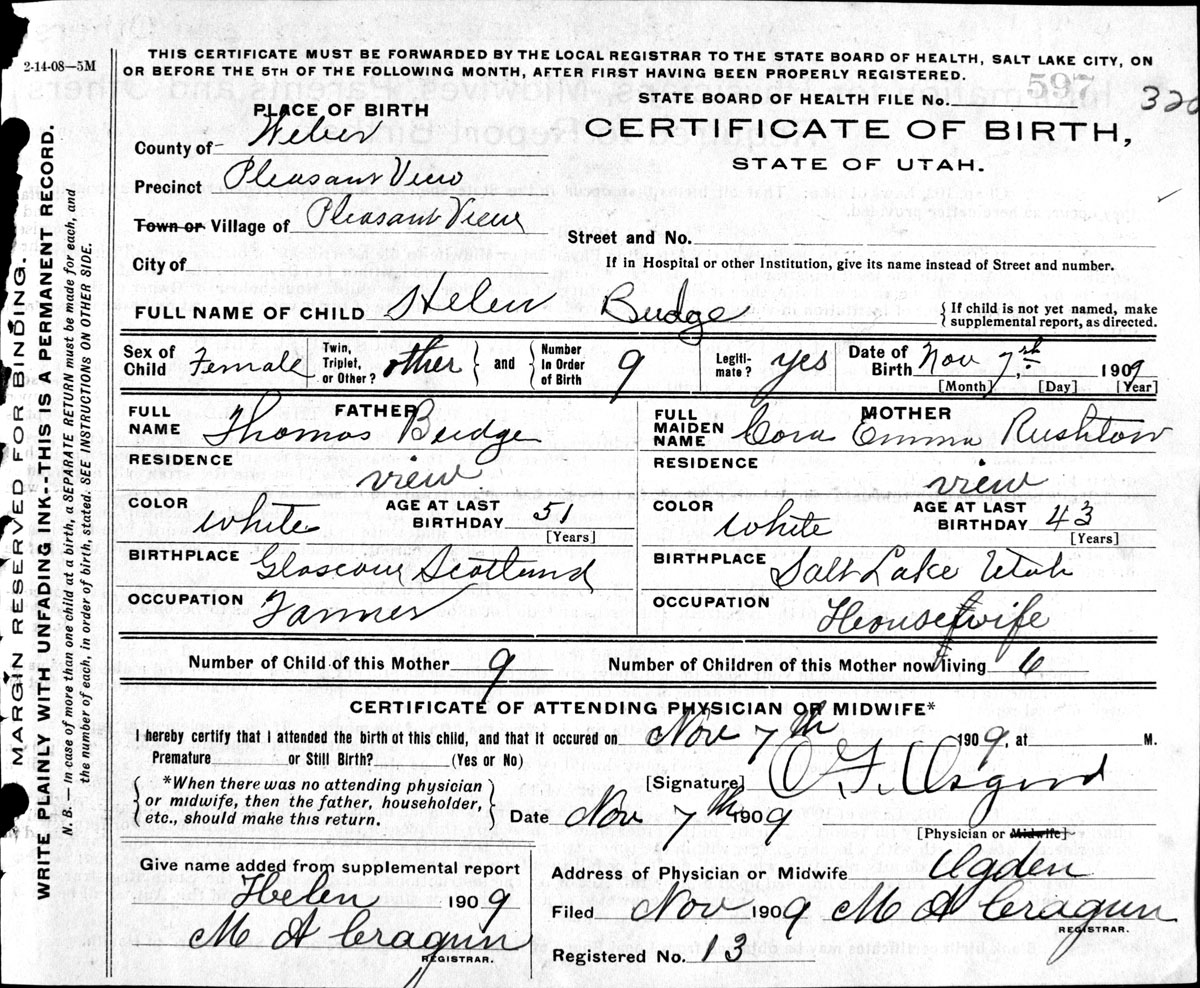 2-14-08—5M
THIS CERTIFICATE MUST BE FORWARDED BY THE LOCAL REGISTRAR TO THE STATE BOARD OF HEALTH, SALT LAKE CITY, ON
OR BEFORE THE 5TH OF THE FOLLOWING MONTH, AFTER FIRST HAVING BEEN PROPERLY REGISTERED.
PLACE OF BIRTH
STATE BOARD OF HEALTH FILE No. 597 320
CERTIFICATE OF BIRTH,
STATE OF UTAH.
County of Weber
Precinct Pleasant View
Town or Village of Pleasant View
Street and No.
City of
If in Hospital or other Institution, give its name instead of Street and number.
FULL NAME OF CHILD Helen Budge { If child is not yet named, make
supplemental report, as directed.
Sex of Child Female Twin, Triplet, or Other? other } and { Number In Order of Birth 9 Legiti-mate? yes Date of Birth Nov 7th 1909
[Month] [Day] [Year]
FATHER
FULL NAME Thomas Budge
RESIDENCE view
COLOR White AGE AT LAST BIRTHDAY 51
[Years]
BIRTHPLACE Glascow Scotland
OCCUPATION Farmer
MOTHER
FULL MAIDEN NAME Cora Emma Rushton
RESIDENCE view
COLOR White AGE AT LAST BIRTHDAY 43
[Years]
BIRTHPLACE Salt Lake Utah
OCCUPATION Housewife
Number of Child of this Mother 9 Number of Children of this Mother now living 6
CERTIFICATE OF ATTENDING PHYSICIAN OR MIDWIFE*
I hereby certify that I attended the birth of this child, and that it occured on Nov 7th 1909, at M.
Premature or Still Birth? (Yes or No)
*When there was no attending physician
or midwife, then the father, householder,
etc., should make this return.
[Signature] O. F. Osgood
Date Nov 7th 1909
[Physician or Midwife]
Give name added from supplemental report
Helen 1909
M A Cragun
REGISTRAR.
Address of Physician or Midwife Ogden
Filed Nov 1909 M A Cragun
REGISTRAR.
Registered No. 13
MARGIN RESERVED FOR BINDING.
WRITE PLAINLY WITH UNFADING INK--THIS IS A PERMANENT RECORD.
N. B. — In case of more than one child at a birth, a SEPARATE RETURN must be made for each, and
the number of each, in order of birth, stated. SEE INSTRUCTIONS ON OTHER SIDE.